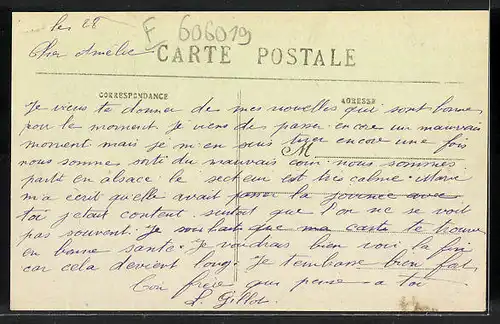 les 28
F 606019
Cher Amélie
CARTE POSTALE
CORRESPONDANCE
ADRESSE
Je viens te donner de mes nouvelles qui sont bonnes
pour le moment je viens de passer encore un mauvais
moment mais je m'en suis tirer encore une fois
M
nous sommes sorti du mauvais coin nous sommes
partit en alsace le secteur est très calme Marie
m'a écrit qu'elle avait passer la avec
toi j'etait content surtout que l'on ne se voit
pas souvent. Je souhaite que ma carte te trouve
en bonne santé. Je voudrais bien voir la fin
car cela devient long. Je t'embasse bien fort
Ton frère qui pense a toi
L. Gillot